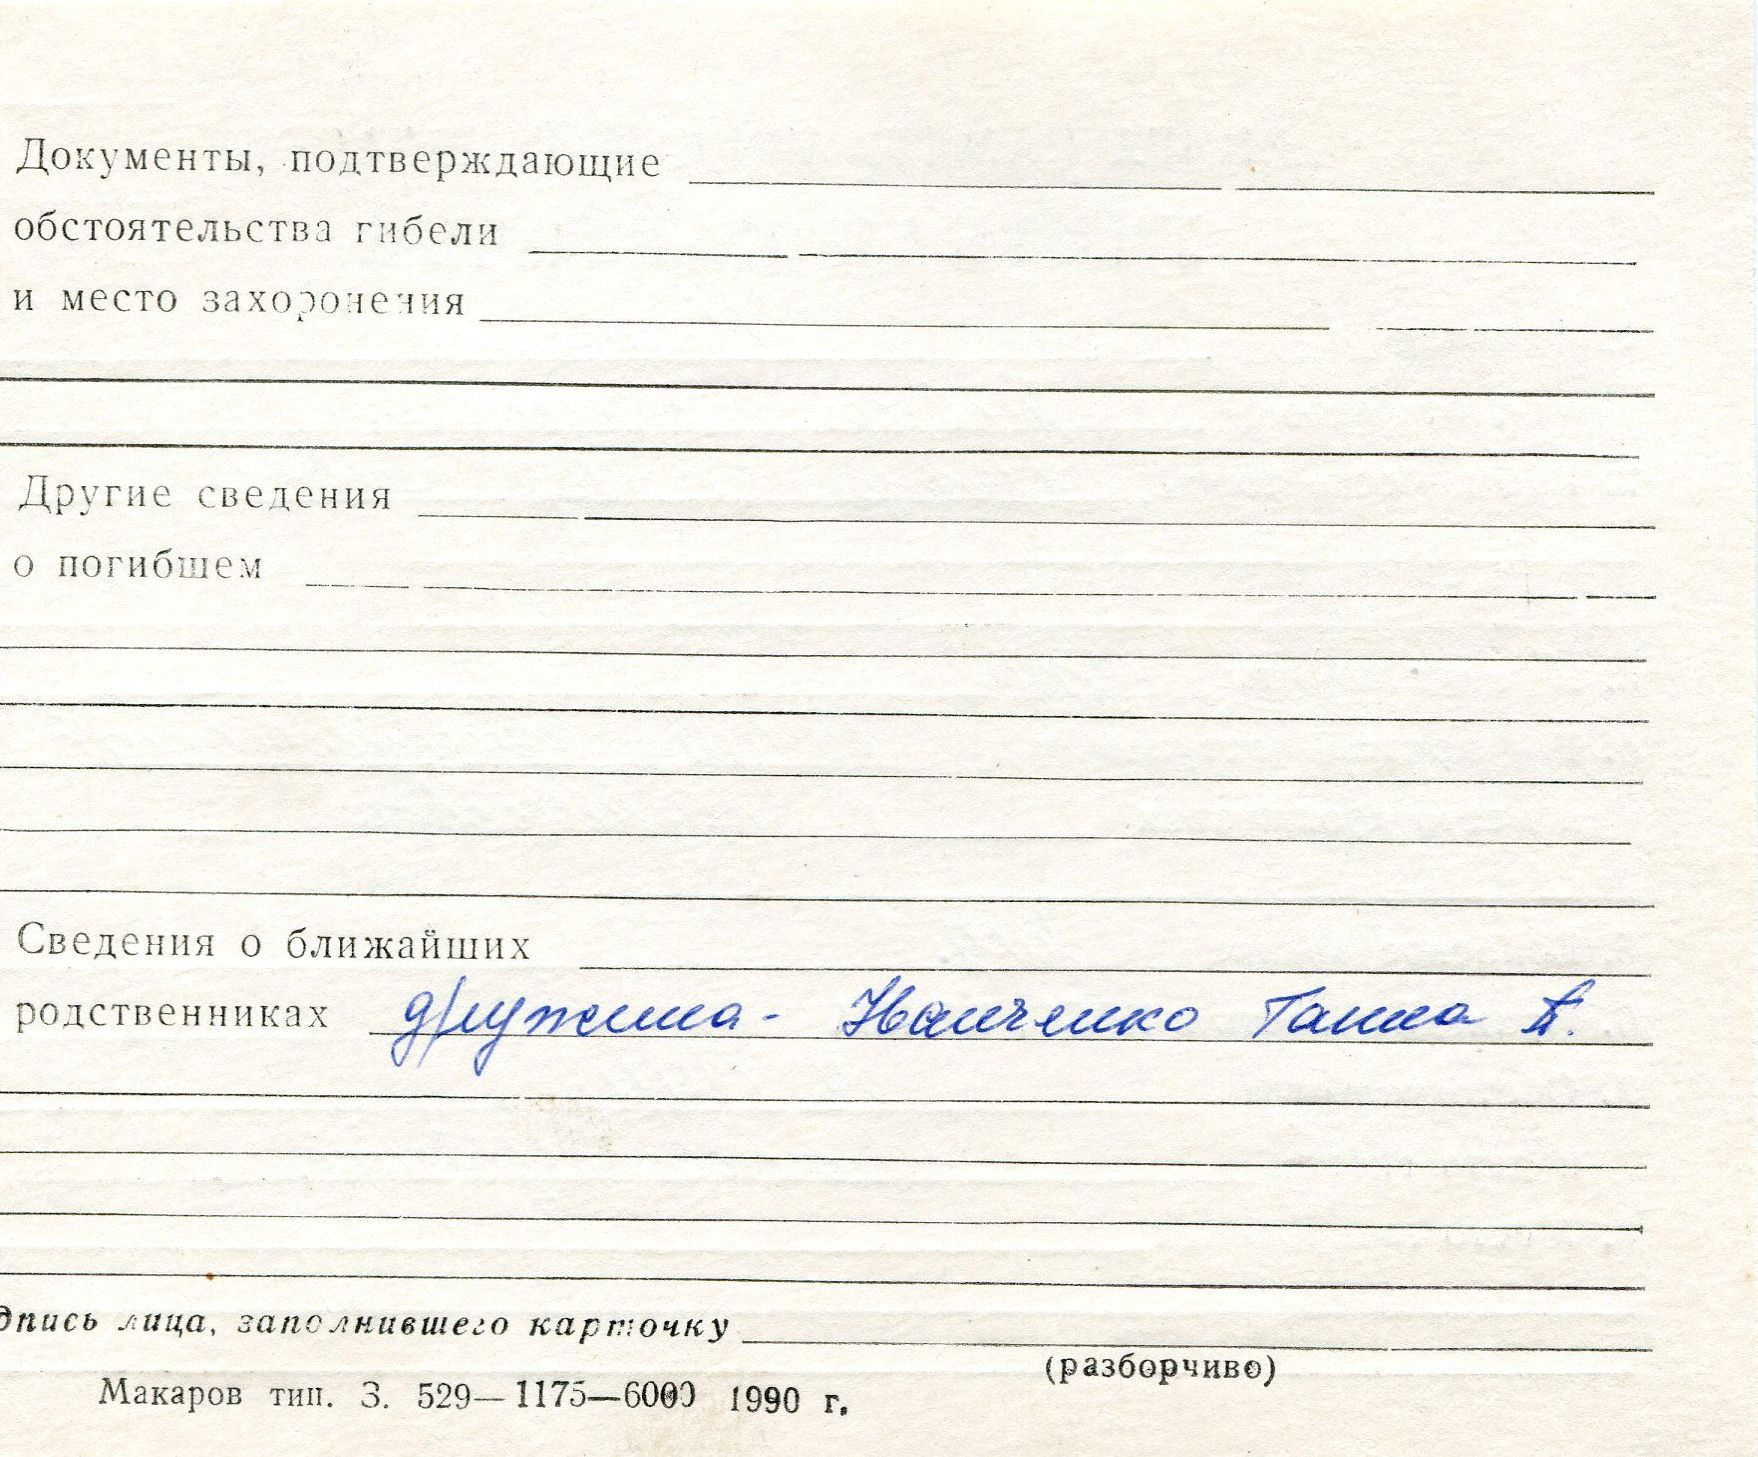 Документы, подтверждающие
обстоятельства гибели
и место захоронения
Другие сведения
о погибшем
Сведения о ближайших
родственниках дружина - Іванченко Ганна А.
дпись лица, заполнившего карточку
(разборчиво)
Макаров тип. З. 529—1175—6000 1990 г.